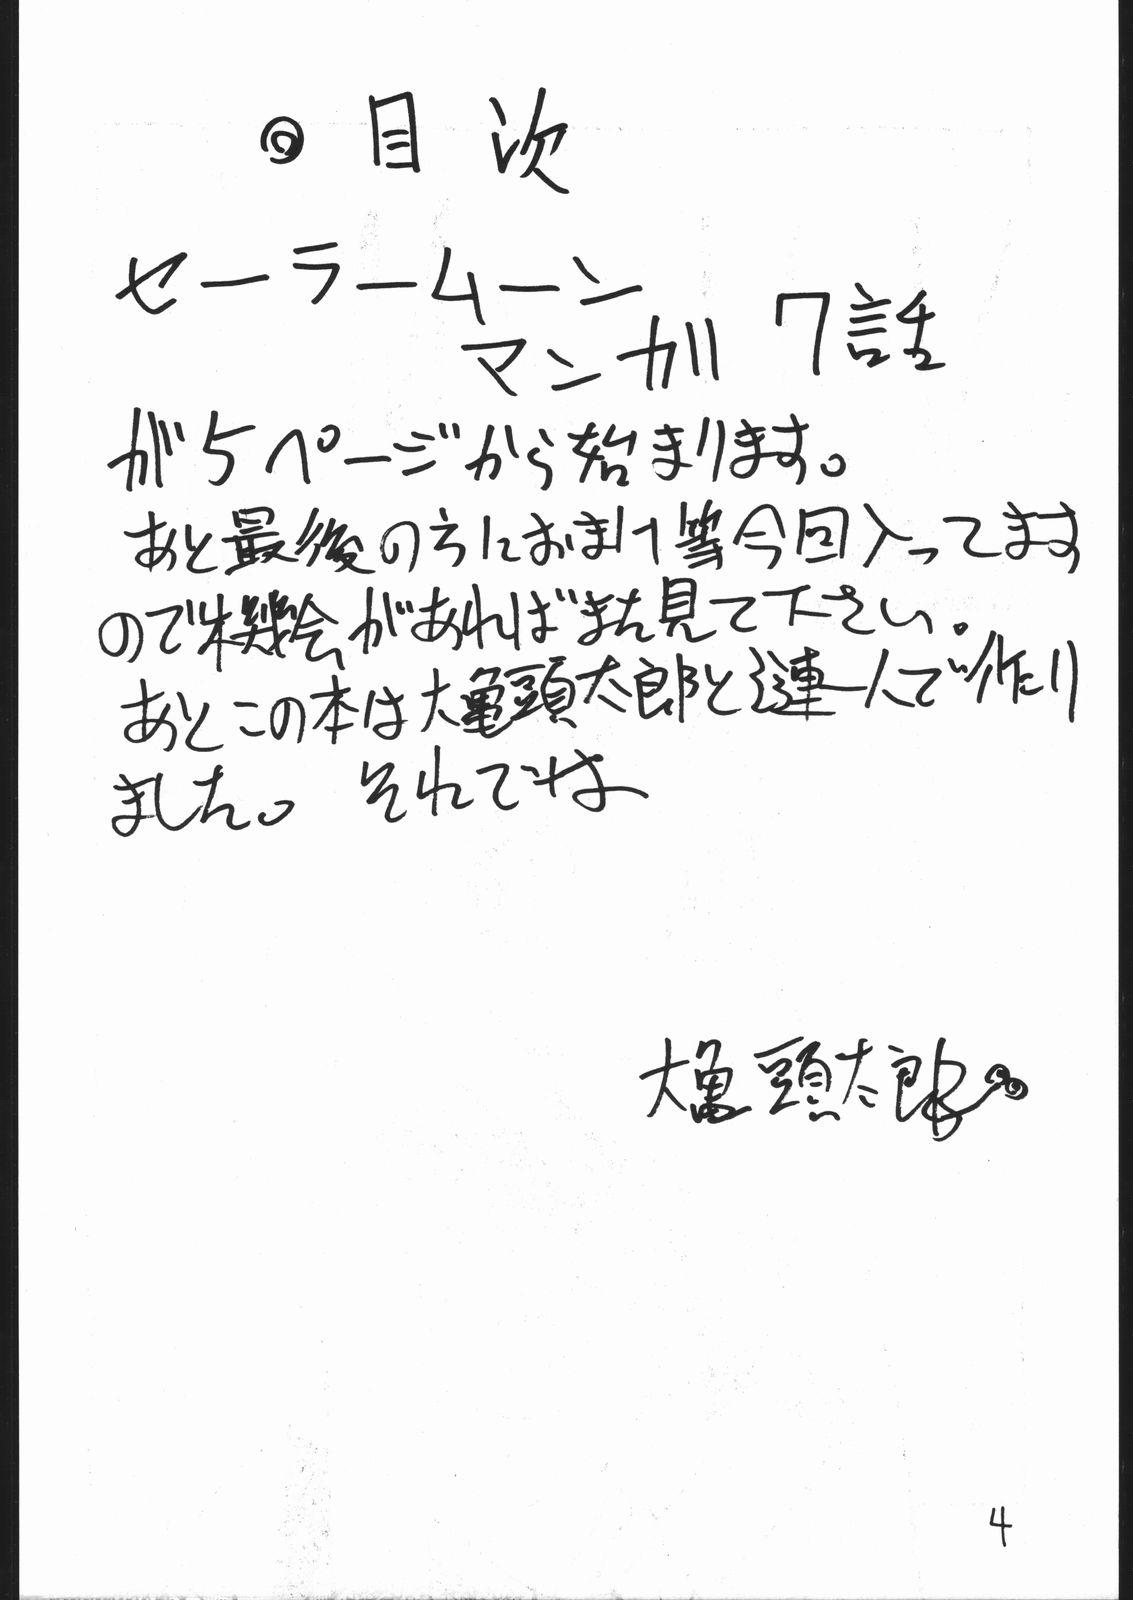 ◎ 目次
セーラームーン
マンガ 7話
が5ページから始まります。
あと最後の方におまけ等今回入ってます
ので機会があればまた見て下さい。
あとこの本は大亀頭太郎と漣一人で作り
ました。 それでは
大亀頭太郎
4